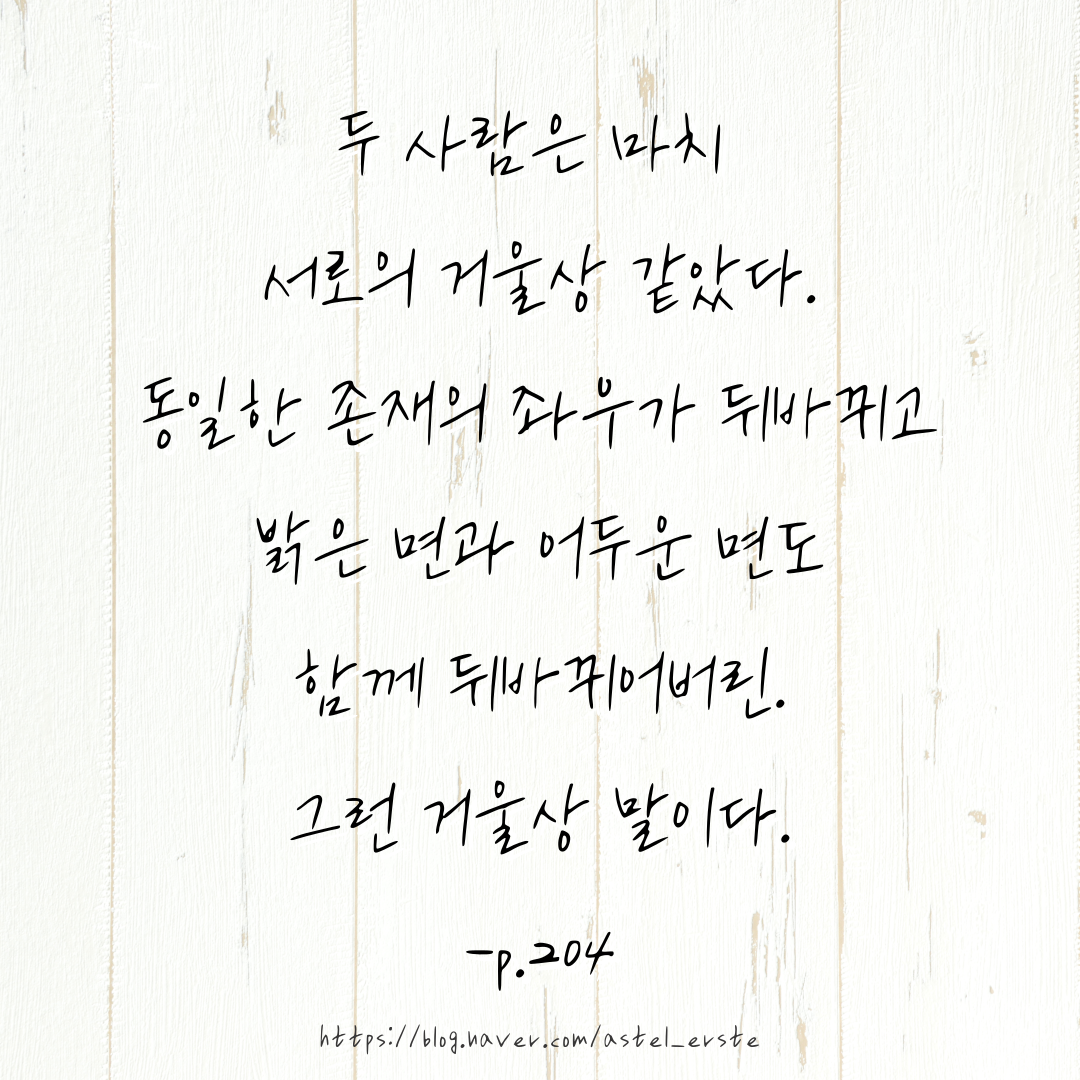 두 사람은 마치
서로의 거울상 같았다.
동일한 존재의 좌우가 뒤바뀌고
밝은 면과 어두운 면도
함께 뒤바뀌어버린.
그런 거울상 말이다.
-p.204
https://blog.naver.com/astel_erste